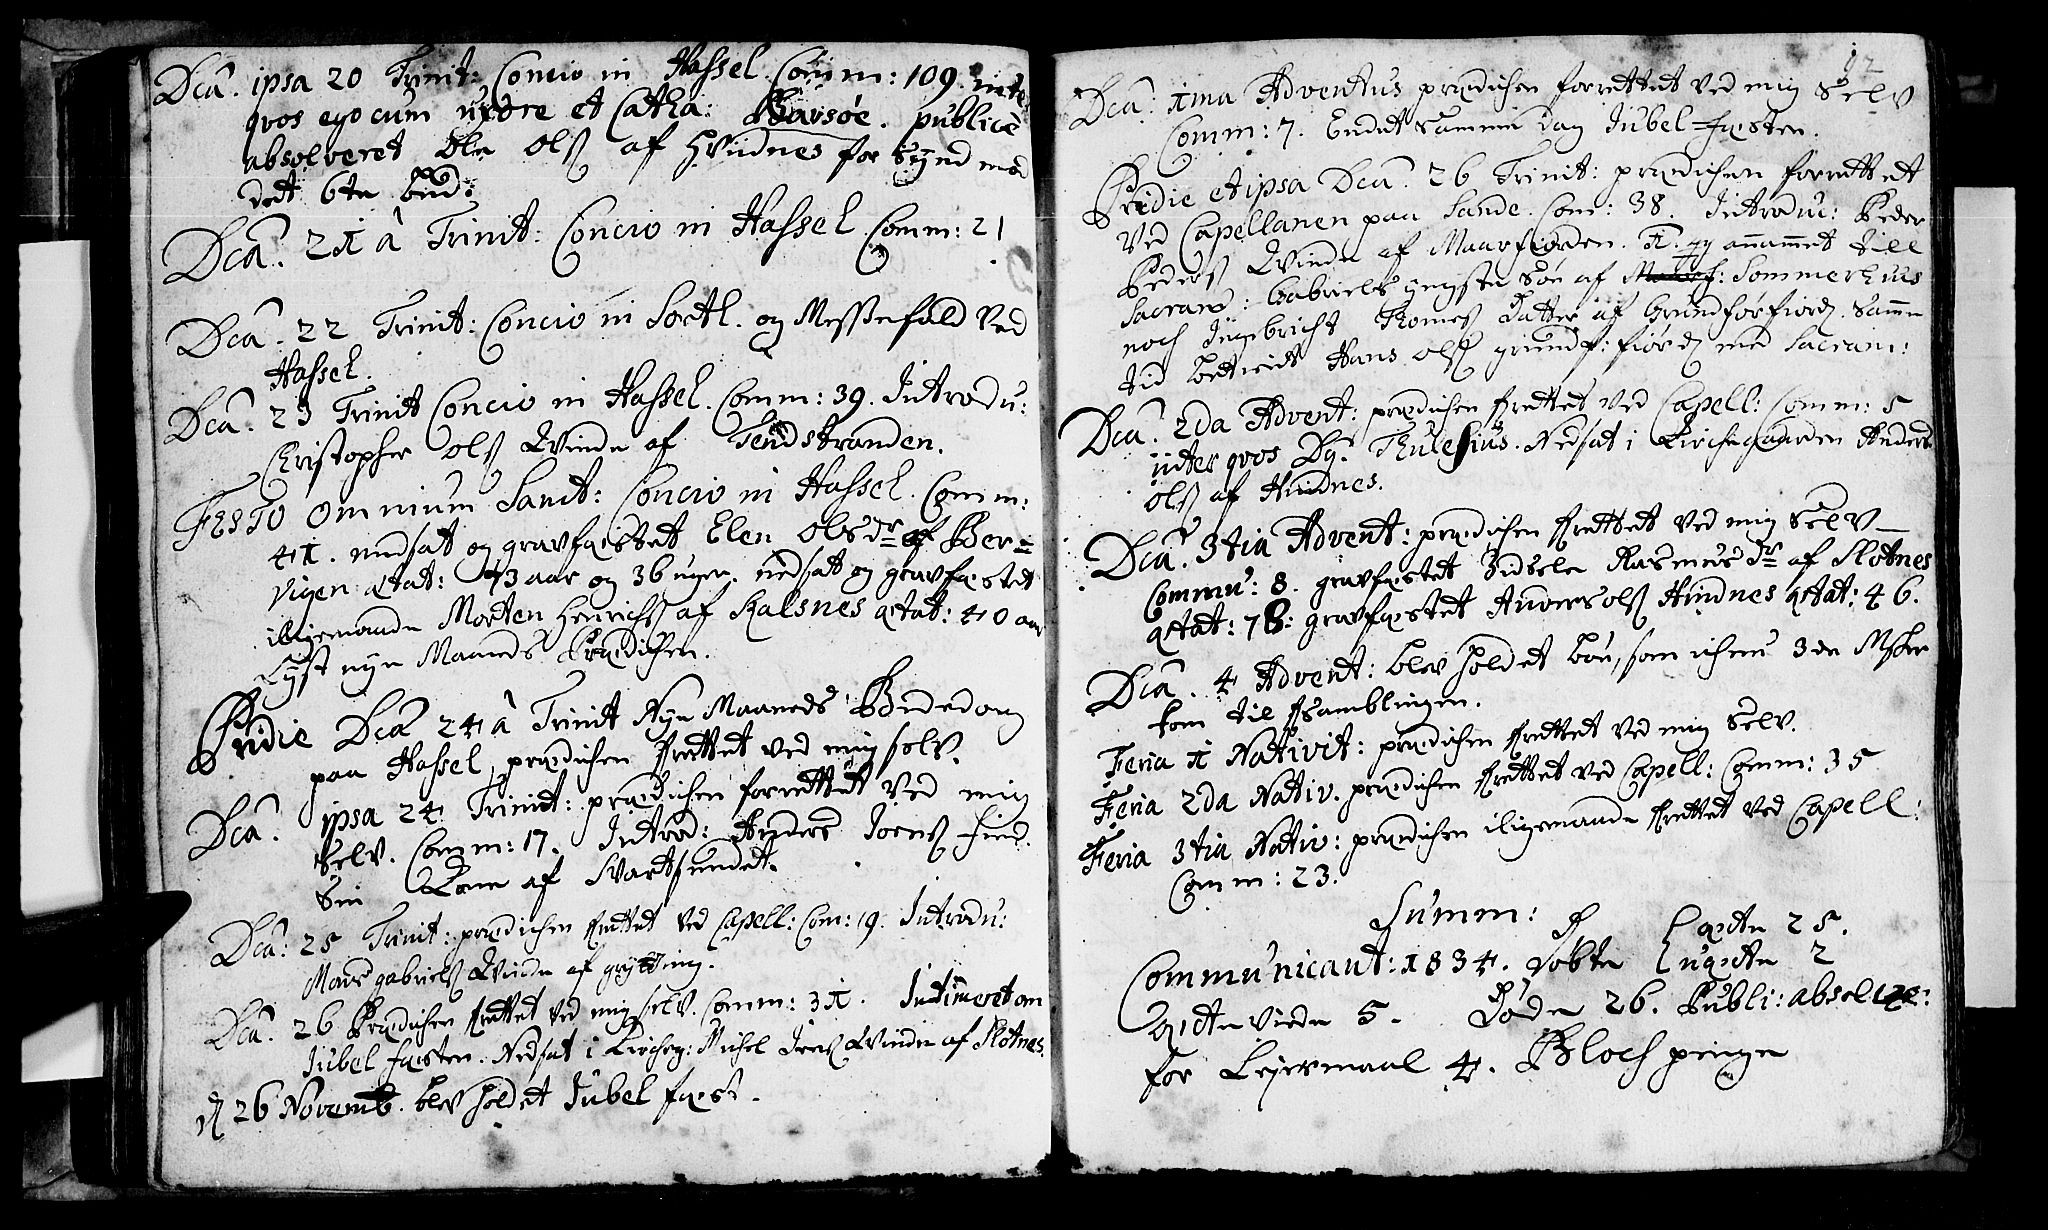 Dca. ipsa 20 Trinit: Concio in Hassel. Comm: 109. inter
qvos ego cum uxore et Catha: Barsøe. publicè
absolveret Ole Olß af Hvidnes for Synd mod
det 6te bud:
Dca. 21 â Trinit: Concio in Hassel Comm: 21
Dca. 22 Trinit: Concio in Sortl. og Messefald ved
Hassel.
Dca. 23 Trinit Concio in Hassel. Comm: 39. Introdu:
Christopher Olß Qvinde af Tendstranden.
Festo Omnium Sanct: Concio in Hassel. Comm:
41. nedsat og gravfæstet Elen Olsdr af Ber=
vigen ætat: 73 aar og 36 uger. nedsat og gravfæstet
iligemaade Morten Henrichß af Kalsnes ætat: 40 aar
Lyst nye Maaneds Prædichen.
Pridie Dca 24 â Trinit Nye Maaneds Bededag
paa Hassel, prædichen frettet ved mig selv.
Dca. ipsa 24 Trinit: prædichen forrettet ved mig
Selv. Comm: 17. Introd: Anders Joenß Find.
Sin Kone af Svartsundet.
Dca: 25 Trinit: prædichen frettet ved Capell: Com: 19. Introdu:
Mons gabrielß Qvinde af grytting.
Dca: 26 Prædichen frettet ved mig selv. Comm: 31. Intimeret om
Jubel festen. Nedsat i Kircheg: Michel Jenß Qvinde af Slotnes.
d 26 Novemb. blev holdet Jubel fæst.
12
Dca: 1ma Adventus prædichen forrettet ved mig Selv
Comm: 7. Endet samme dag Jubel-fæsten.
Pridie et ipsa Dca. 26 Trinit: prædichen forrettet
ved Capellanen paa Sande. Com: 38. Introdu: Peder
Pederß Qvinde af Maarfiorden. annammet till
Sacram: Gabriels yngste Søn af Sommerhuus
noch Ingebricht Thomeß Datter af Grundforfiord. Samme
tid betient Hans Olß grundf: fiord med Sacram:
Dca. 2da Advent: prædichen frettet ved Capell: Comm: 5
inter qvos Dn. Thulesius. Nedsat i Kirchegaarden Anders
Olß af Hindnes.
Dca. 3tia Advent: prædichen frettet ved mig Selv
Commu: 8. gravfæstet Zidsele Rasmusdr af Slotnes
ætat: 78: gravfæstet Anders Olß Hindnes ætat: 46.
Dca. 4 Advent: blev holdet bøn, som ichun 3 de Mskr
kom til fsamblingen.
Feria 1 Nativit: prædichen frettet ved mig Selv.
Feria 2da Nativ. prædichen frettet ved Capell: Comm: 35
Feria 3tia Nativ: prædichen iligemaade frettet ved Capell:
Comm: 23.
Summ:
Communicant: 1834. døbte Ægte 25.
Uægte 2
ægteviede 5. Døde 26. Publi: absolute:
for Lejermaal 4. Bloch penge